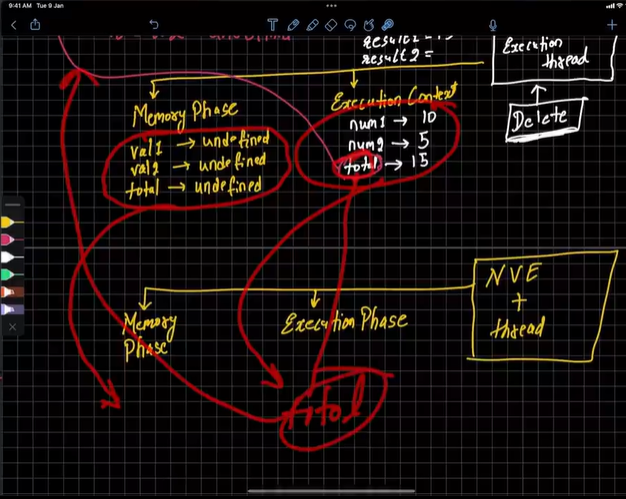 9:41 AM Tue 9 Jan
result2 =
Execution
thread
Delete
Memory Phase
val1 → undefined
val2 → undefined
total → undefined
Execution Context
num1 → 10
num2 → 5
total → 15
NVE
+
thread
Memory
Phase
Execution Phase
total